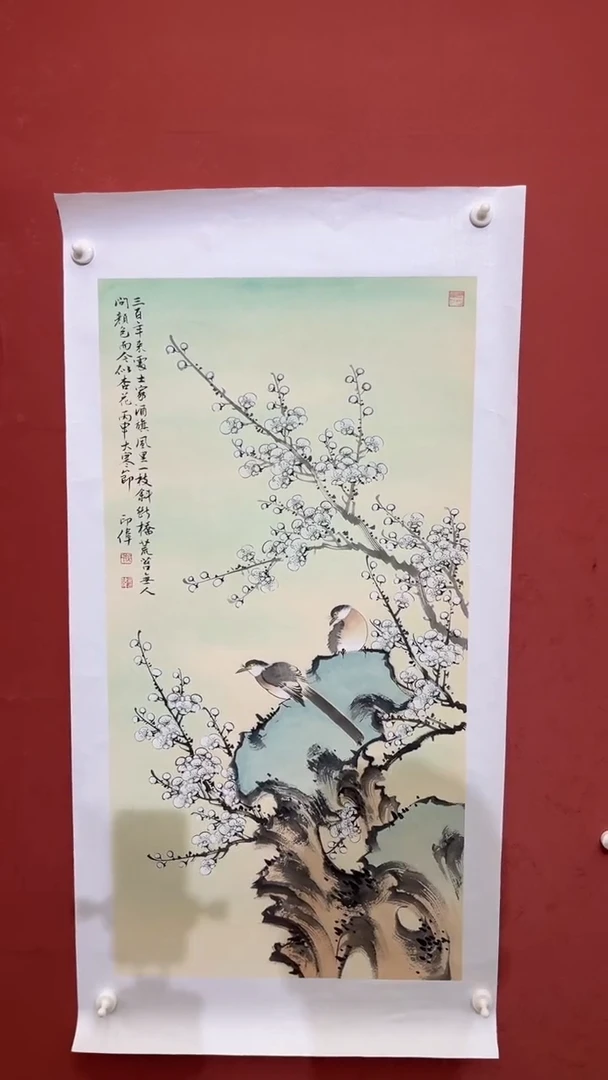 三百年来处士家酒旗风里一枝斜断桥荒苔无人
问颜色而今似杏花丙申大寒节
印伟